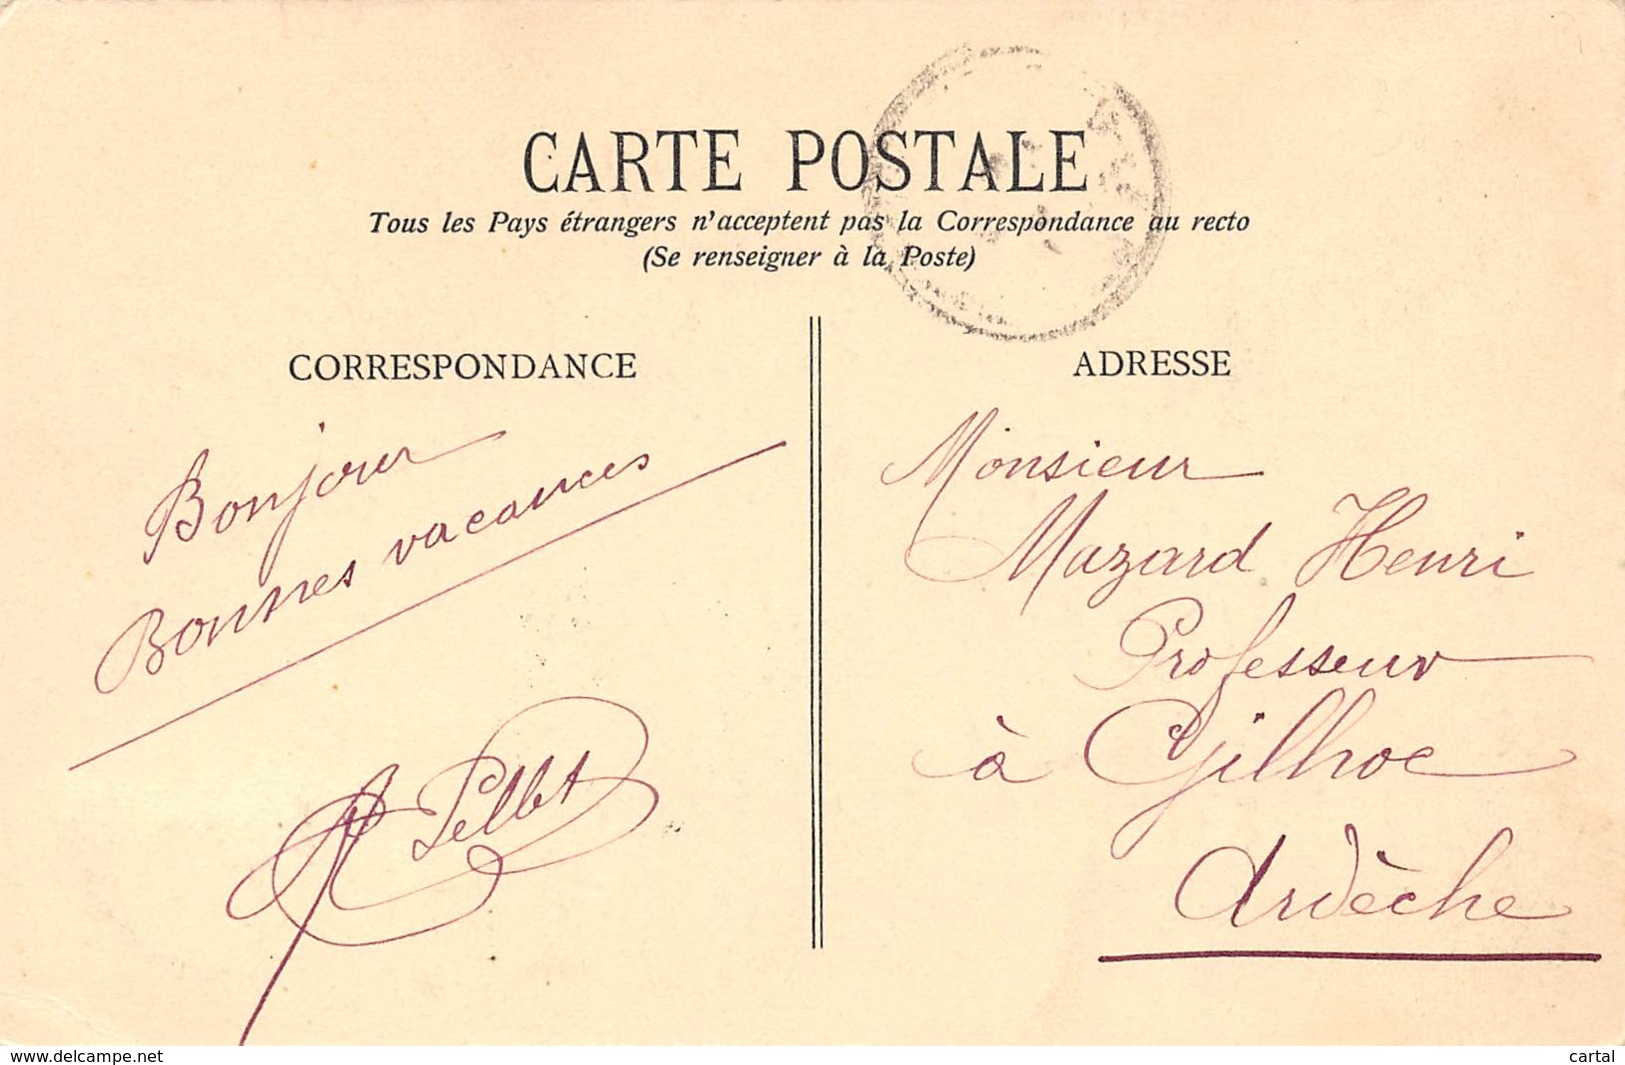 CARTE POSTALE
Tous les Pays étrangers n'acceptent pas la Correspondance au recto
(Se renseigner à la Poste)
CORRESPONDANCE
Bonjour
Bonnes vacances
ADRESSE
Monsieur
Mazard Henri
Professeur
à Gilhoc
Ardèche
www.delcampe.net
cartal